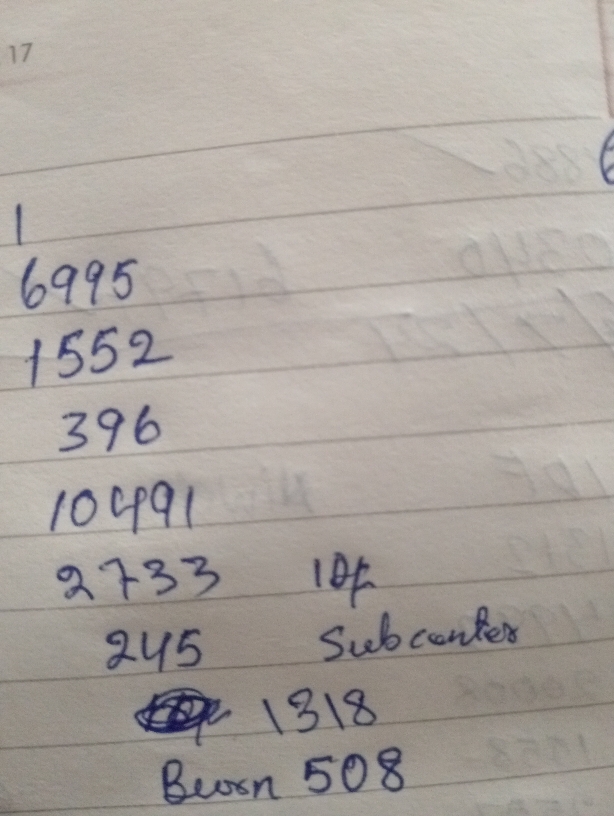 17
1
6995
1552
396
10491
2733
245 Subcenter
1318
Bworn 508